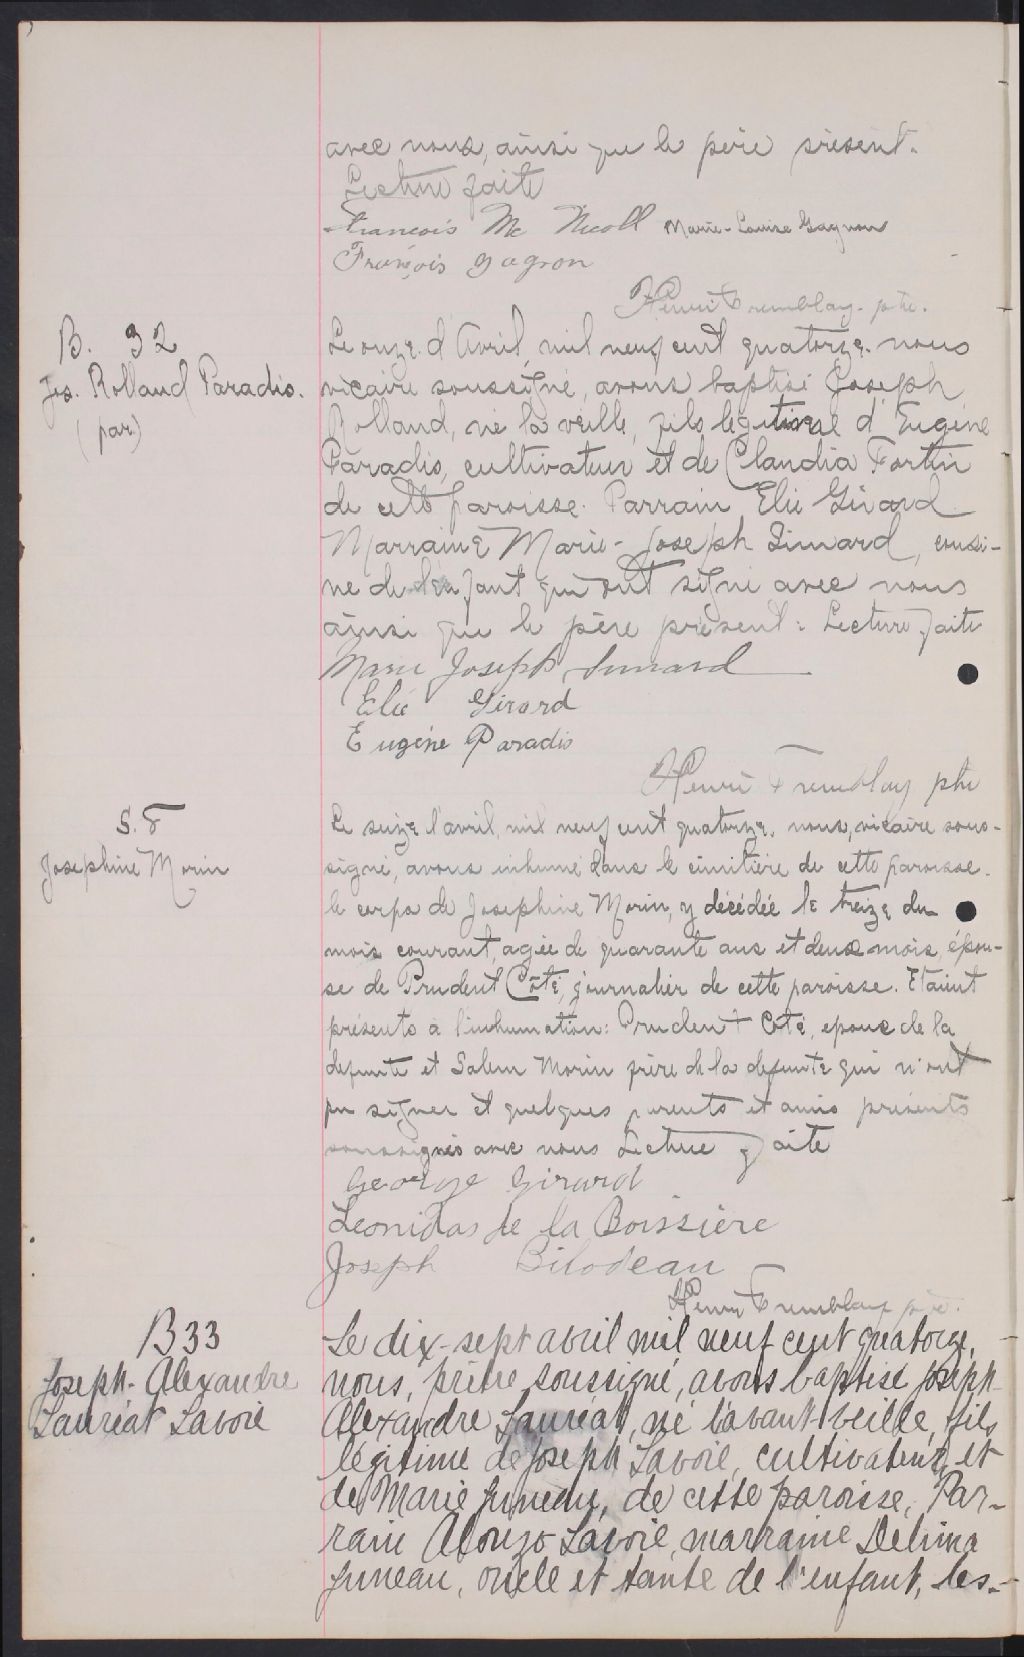 avec nous, ainsi que le père présent.
Lecture faite
François Mc Nicoll Marie-Louise Gagnon
François Gagnon
Henri Tremblay. ptre.
B. 32
Jos. Rolland Paradis.
(par)
Le onze d'Avril, mil neuf cent quatorze. nous
vicaire soussigné, avons baptisé Joseph
Rolland, né la veille, fils légitime d'Eugène
Paradis, cultivateur et de Claudia Fortin
de cette paroisse. Parrain Elie Girard
Marraine Marie-Joseph Simard, cousi-
ne de l'enfant qui ont signé avec nous
ainsi que le père présent. Lecture faite
Marie Joseph Simard
Elie Girard
Eugène Paradis
Henri Tremblay ptre
S. 8
Josephine Morin
Le seize d'avril, mil neuf cent quatorze. nous, vicaire sous-
signé, avons inhumé dans le cimitière de cette paroisse.
le corps de Josephine Morin, y décédée le treize du
mois courant, agée de quarante ans et deux mois, épou-
se de Prudent Côté, journalier de cette paroisse. Etaient
présents à l'inhumation: Prudent Côté, epoux de la
defunte et Salem Morin frère de la defunte qui n'ont
pu signer et quelques parents et amis présents
soussignés avec nous Lecture faite
George Girard
Leonidas de la Boissière
Joseph Bilodeau
Henri Tremblay ptre.
B 33
Joseph-Alexandre
Lauréat Lavoie
Le dix-sept avril mil neuf cent quatorze,
nous, prêtre soussigné, avons baptisé Joseph-
Alexandre Lauréat, né l'avant veille, fils
légitime de Joseph Lavoie, cultivateur, et
de Marie Juneau, de cette paroisse, Par-
rain Alonzo Lavoie, marraine Delima
Juneau, oncle et tante de l'enfant, les-